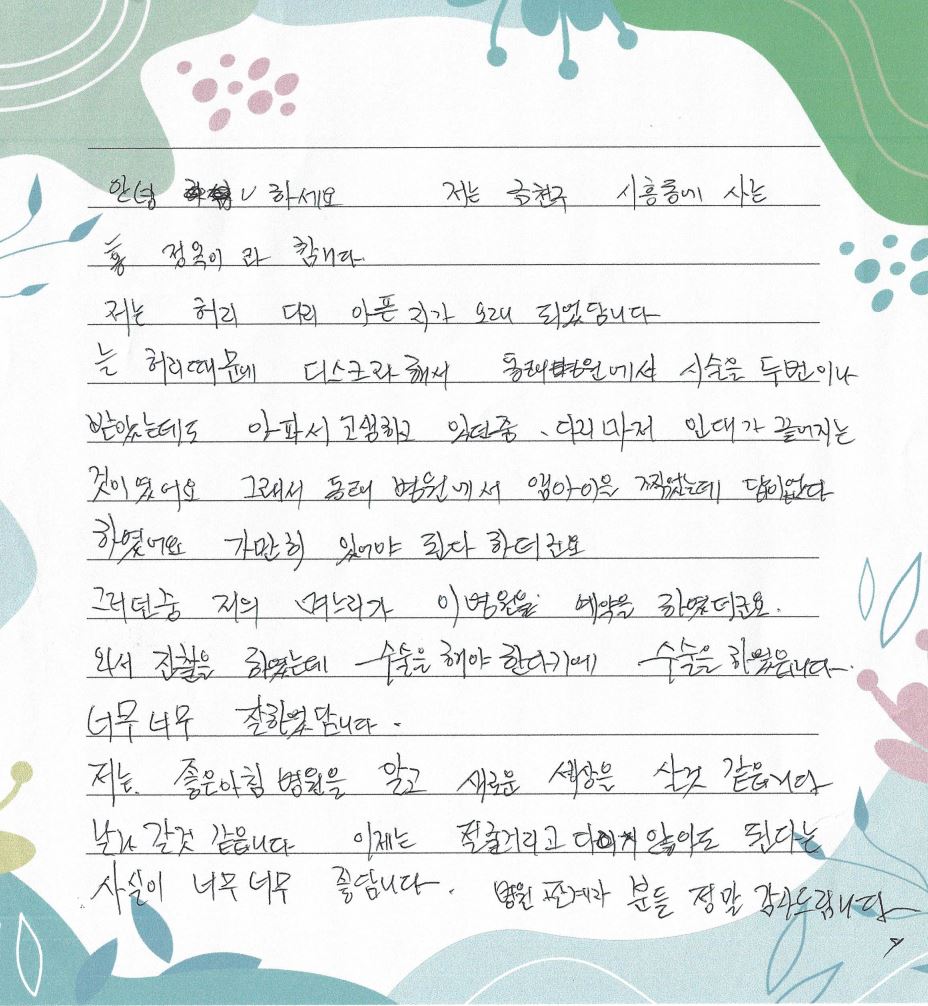 안녕 하세요 저는 금천구 시흥동에 사는
홍 정옥이 라 합니다.
저는 허리 다리 아픈 지가 오래 되었담니다
는 허리때문에 디스크라해서 동래병원에서 시술을 두번이나
받았는데도 아파서 고생하고 있던중 다리마저 인대가 끝어지는
것이 였어요 그래서 동래 병원에서 앰아이을 찍었는데 답이없다
하였어요 가만히 있어야 된다 하더군요
그러던중 저의 며느리가 이병원을 예약을 하였더군요.
와서 진찰을 하였는데 수술을 해야 한다기에 수술을 하였읍니다.
너무 너무 잘하였담니다.
저는. 좋은아침 병원을 알고 새로운 세상을 사는것 같읍니다
날라 갈것 같읍니다 이제는 쩔줄거리고 다니지 않아도 된다는
사실이 너무 너무 좋담니다. 병원 관계자 분들 정말 감사드림니다